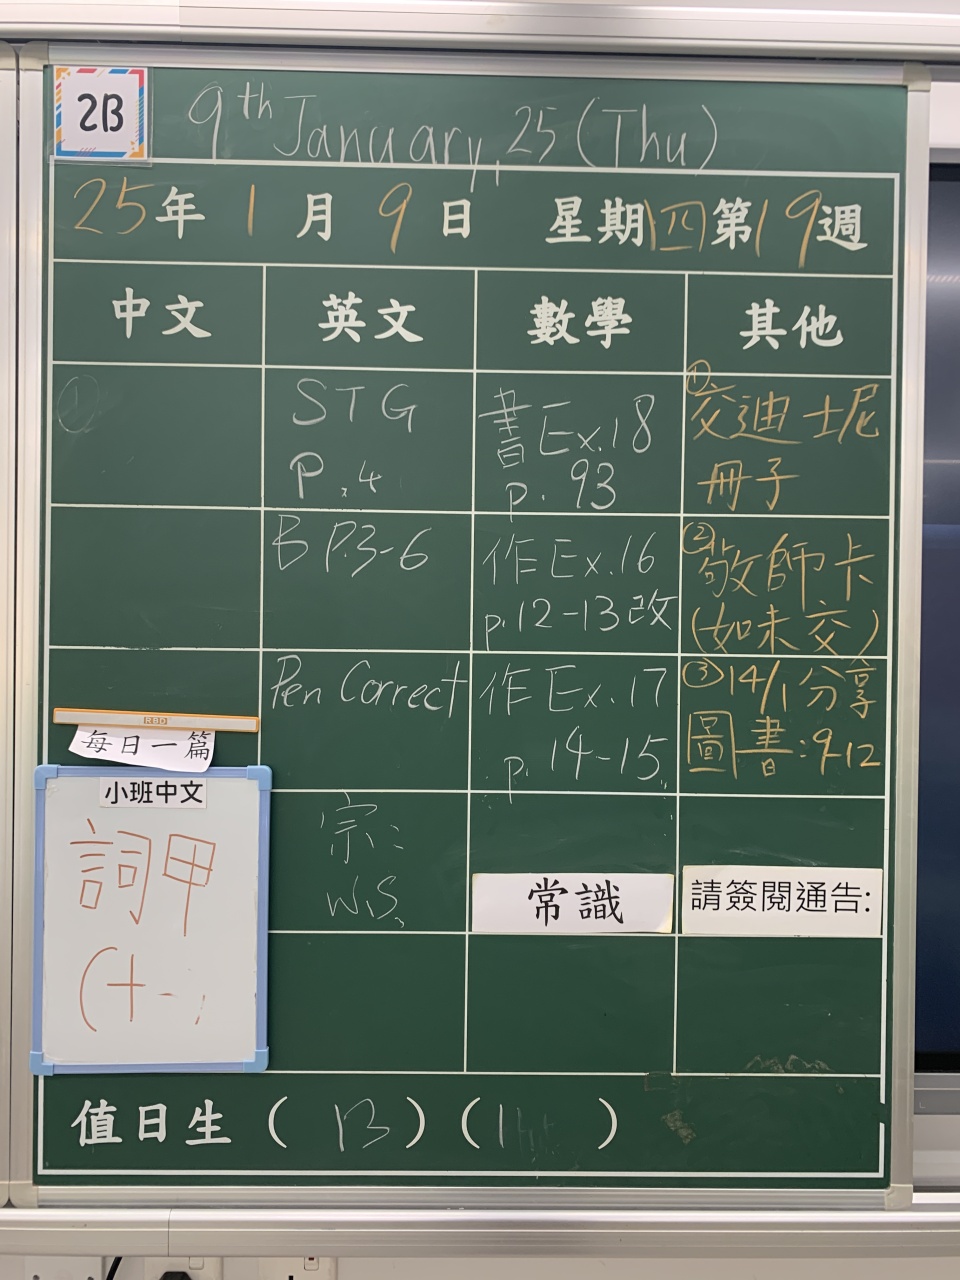 2B
9th January, 25 (Thu)
25年 1月 9日 星期四第19週
中文 英文 數學 其他
①
STG
P.4
書Ex.18
p.93
①交迪士尼
冊子
B P.3-6
作Ex.16
p.12-13改
②敬師卡
(如未交)
Pen Correct
作Ex.17
p.14-15
③14/1分享
圖書:9-12
RBD
每日一篇
小班中文
詞甲
(十一
宗:
W.S.
常識
請簽閱通告:
值日生 ( 13 ) ( )